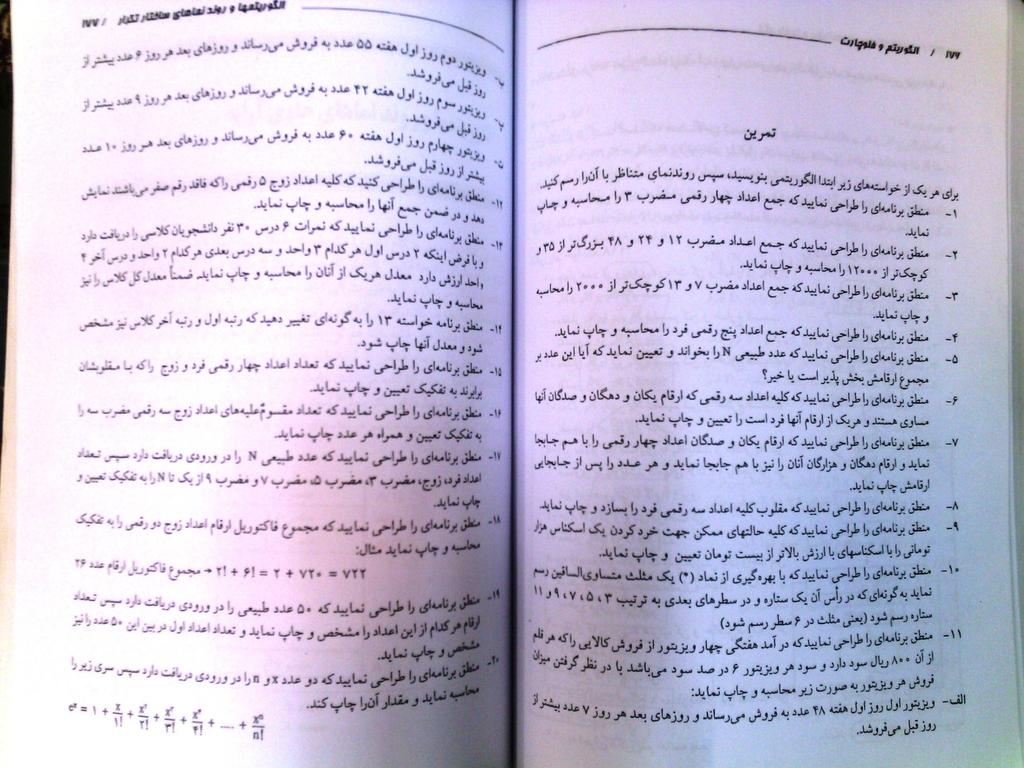 ۱۷۶ / الگوریتم و فلوچارت
تمرین
برای هر یک از خواسته‌های زیر ابتدا الگوریتمی بنویسید، سپس روندنمای متناظر با آن‌را رسم کنید.
۱- منطق برنامه‌ای را طراحی نمایید که جمع اعداد چهار رقمی مضرب ۳ را محاسبه و چاپ
نماید.
۲- منطق برنامه‌ای را طراحی نمایید که جمع اعداد مضرب ۱۲ و ۲۴ و ۴۸ بزرگ‌تر از ۳۵ و
کوچک‌تر از ۱۲۰۰۰ را محاسبه و چاپ نماید.
۳- منطق برنامه‌ای را طراحی نمایید که جمع اعداد مضرب ۷ و ۱۳ کوچک‌تر از ۲۰۰۰ را محاسبه
و چاپ نماید.
۴- منطق برنامه‌ای را طراحی نمایید که جمع اعداد پنج رقمی فرد را محاسبه و چاپ نماید.
۵- منطق برنامه‌ای را طراحی نمایید که عدد طبیعی N را بخواند و تعیین نماید که آیا این عدد بر
مجموع ارقامش بخش پذیر است یا خیر؟
۶- منطق برنامه‌ای را طراحی نمایید که کلیه اعداد سه رقمی که ارقام یکان و دهگان و صدگان آنها
مساوی هستند و هر یک از ارقام آنها فرد است را تعیین و چاپ نماید.
۷- منطق برنامه‌ای را طراحی نمایید که ارقام یکان و صدگان اعداد چهار رقمی را با هم جابجا
نماید و ارقام دهگان و هزارگان آنان را نیز با هم جابجا نماید و هر عدد را پس از جابجایی
ارقامش چاپ نماید.
۸- منطق برنامه‌ای را طراحی نمایید که مقلوب کلیه اعداد سه رقمی فرد را بسازد و چاپ نماید.
۹- منطق برنامه‌ای را طراحی نمایید که کلیه حالتهای ممکن جهت خرد کردن یک اسکناس هزار
تومانی را با اسکناسهای با ارزش بالاتر از بیست تومان تعیین و چاپ نماید.
۱۰- منطق برنامه‌ای را طراحی نمایید که با بهره‌گیری از نماد (*) یک مثلث متساوی‌الساقین رسم
نماید به گونه‌ای که در رأس آن یک ستاره و در سطرهای بعدی به ترتیب ۳، ۵، ۷، ۹ و ۱۱
ستاره رسم شود (یعنی مثلث در ۶ سطر رسم شود)
۱۱- منطق برنامه‌ای را طراحی نمایید که در آمد هفتگی چهار ویزیتور از فروش کالایی را که هر قلم
از آن ۸۰۰ ریال سود دارد و سود هر ویزیتور ۶ در صد سود می‌باشد با در نظر گرفتن میزان
فروش هر ویزیتور به صورت زیر محاسبه و چاپ نماید:
الف- ویزیتور اول روز اول هفته ۴۸ عدد به فروش می‌رساند و روزهای بعد هر روز ۷ عدد بیشتر از
روز قبل می‌فروشد.
الگوریتمها و روند نماهای ساختار تکرار / ۱۷۷
ب- ویزیتور دوم روز اول هفته ۵۵ عدد به فروش می‌رساند و روزهای بعد هر روز ۶ عدد بیشتر از
روز قبل می‌فروشد.
پ- ویزیتور سوم روز اول هفته ۴۲ عدد به فروش می‌رساند و روزهای بعد هر روز ۹ عدد بیشتر از
روز قبل می‌فروشد.
ت- ویزیتور چهارم روز اول هفته ۶۰ عدد به فروش می‌رساند و روزهای بعد هر روز ۱۰ عدد
بیشتر از روز قبل می‌فروشد.
۱۲- منطق برنامه‌ای را طراحی کنید که کلیه اعداد زوج ۵ رقمی را که فاقد رقم صفر می‌باشند نمایش
دهد و در ضمن جمع آنها را محاسبه و چاپ نماید.
۱۳- منطق برنامه‌ای را طراحی نمایید که نمرات ۶ درس ۳۰ نفر دانشجویان کلاسی را دریافت دارد
و با فرض اینکه ۲ درس اول هر کدام ۳ واحد و سه درس بعدی هر کدام ۲ واحد و درس آخر ۴
واحد ارزش دارد معدل هر یک از آنان را محاسبه و چاپ نماید. ضمناً معدل کل کلاس را نیز
محاسبه و چاپ نماید.
۱۴- منطق برنامه خواسته ۱۳ را به گونه‌ای تغییر دهید که رتبه اول و رتبه آخر کلاس نیز مشخص
شود و معدل آنها چاپ شود.
۱۵- منطق برنامه‌ای را طراحی نمایید که تعداد اعداد چهار رقمی فرد و زوج را که با مقلوبشان
برابرند به تفکیک تعیین و چاپ نماید.
۱۶- منطق برنامه‌ای را طراحی نمایید که تعداد مقسومٌ‌علیه‌های اعداد زوج سه رقمی مضرب سه را
به تفکیک تعیین و همراه هر عدد چاپ نماید.
۱۷- منطق برنامه‌ای را طراحی نمایید که عدد طبیعی N را در ورودی دریافت دارد سپس تعداد
اعداد فرد، زوج، مضرب ۳، مضرب ۵، مضرب ۷ و مضرب ۹ از یک تا N را به تفکیک تعیین و
چاپ نماید.
۱۸- منطق برنامه‌ای را طراحی نمایید که مجموع فاکتوریل ارقام اعداد زوج دو رقمی را به تفکیک
محاسبه و چاپ نماید مثال:
مجموع فاکتوریل ارقام عدد ۲۶ → ۲! + ۶! = ۲ + ۷۲۰ = ۷۲۲
۱۹- منطق برنامه‌ای را طراحی نمایید که ۵۰ عدد طبیعی را در ورودی دریافت دارد سپس تعداد
ارقام هر کدام از این اعداد را مشخص و چاپ نماید و تعداد اعداد اول در بین این ۵۰ عدد را نیز
مشخص و چاپ نماید.
۲۰- منطق برنامه‌ای را طراحی نمایید که دو عدد x و n را در ورودی دریافت دارد سپس سری زیر را
محاسبه نماید و مقدار آن‌را چاپ کند.
eˣ = ۱ + x/۱! + x²/۲! + x³/۳! + x⁴/۴! + .... + xⁿ/n!